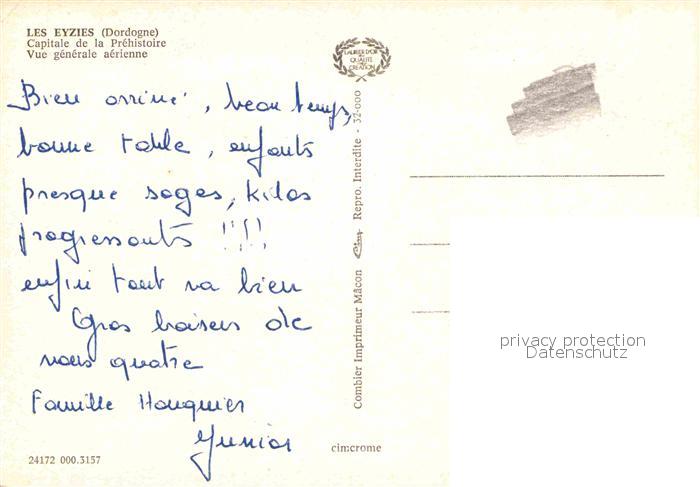 LES EYZIES (Dordogne)
Capitale de la Préhistoire
Vue générale aérienne
LAURIER D'OR
QUALITÉ
CRÉATION
Bien arrivé, beau temps,
bonne table, enfants
presque sages, kilos
progressants !!!!
enfin tout va bien
Gros baisers de
nous quatre
Famille
Junior
24172 000.3157
Combier Imprimeur Mâcon Cim Repro. Interdite - 32-000
cimcrome
privacy protection
Datenschutz